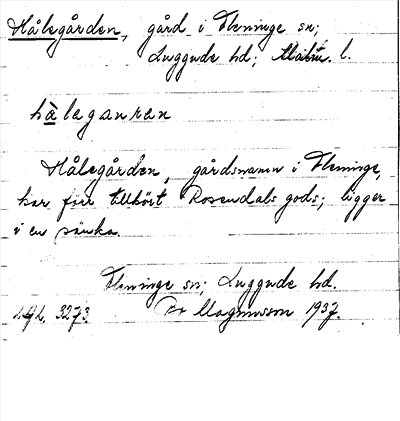 Hålegården, gård i Fleninge sn;
Luggude hd; Malm. l.
hàlegauren
Hålegården, gårdsnamn i Fleninge,
har förr tillhört Rosendals gods; ligger
i en sänka.
Fleninge sn; Luggude hd.
3273. Magnusson 1937.